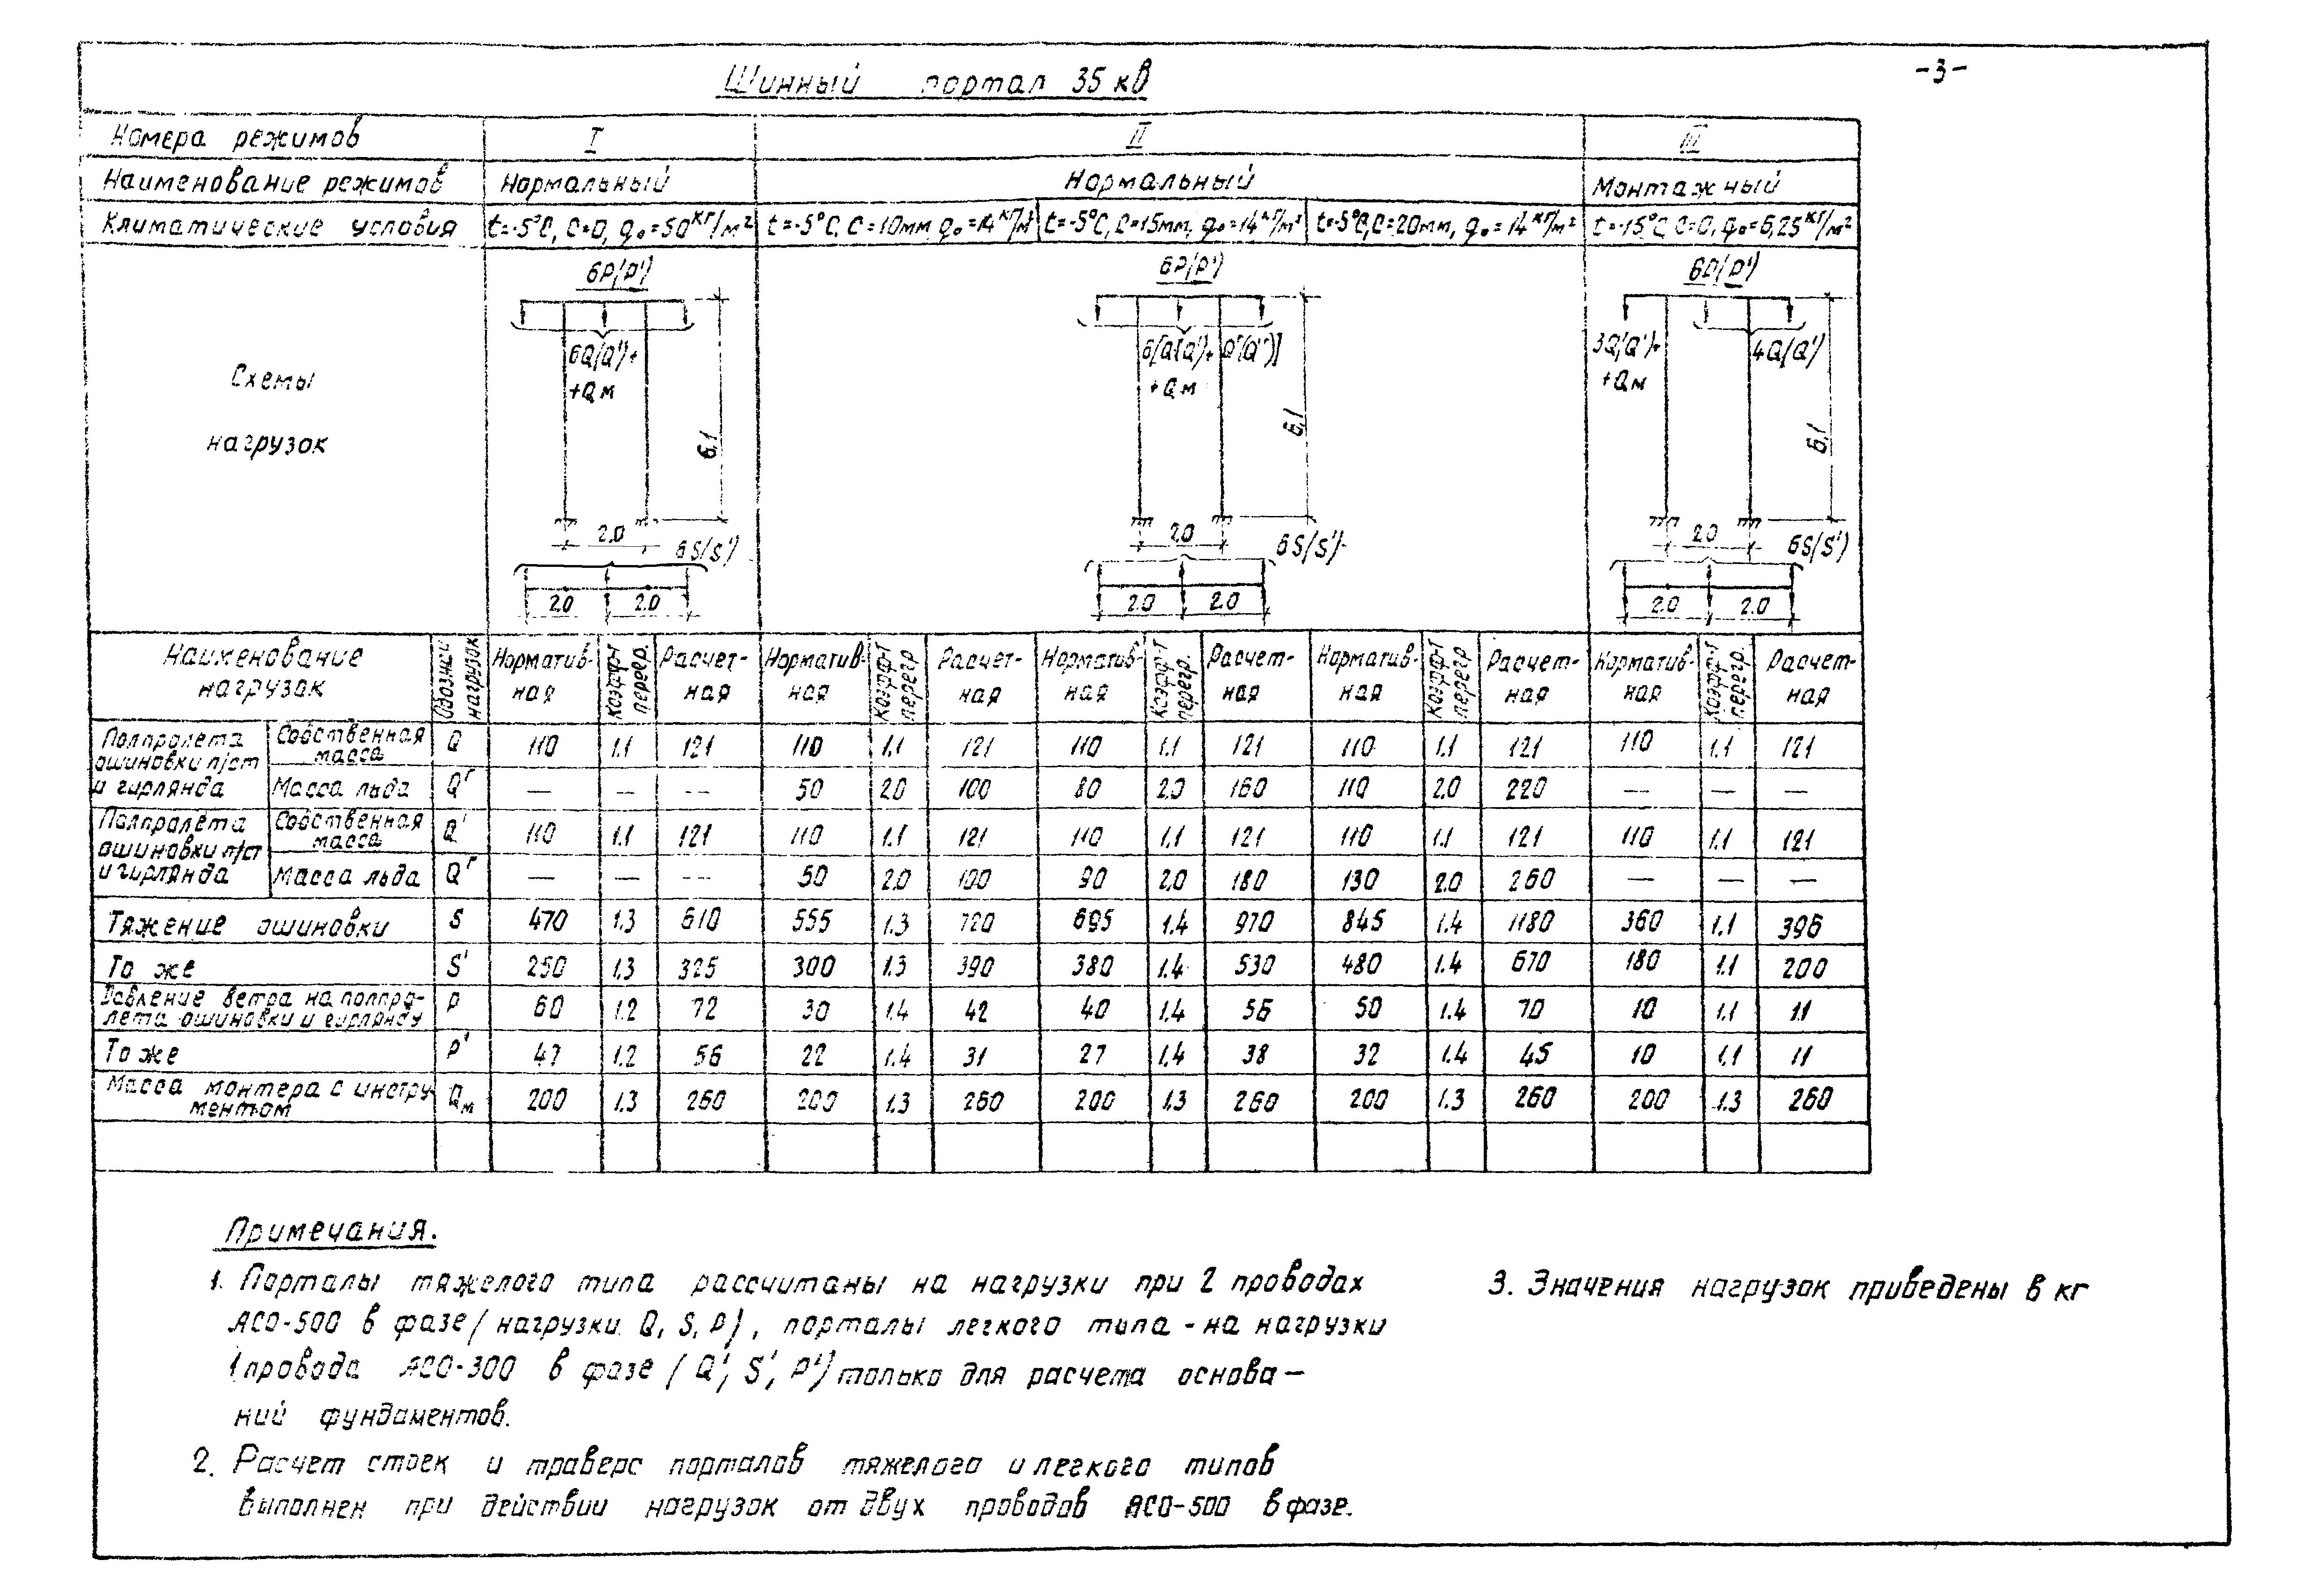 Шинный портал 35 кВ
-3-
Номера режимов I II III
Наименование режимов Нормальный Нормальный Монтажный
Климатические условия t=-5°C, C=0, q₀=50кг/м² t=-5°C, C=10мм q₀=14кг/м² t=-5°C, C=15мм, q₀=14кг/м² t=-5°C, C=20мм, q₀=14кг/м² t=-15°C C=0, q₀=6,25кг/м²
6P(P') 6P(P') 6P(P')
6Q(Q')+ 6[Q(Q')+ Qг(Qг')] 3Q(Q')+ 4Q(Q')
+Qм +Qм +Qм
Схемы
нагрузок
6,1 6,1 6,1
2.0 2.0 2.0
6S(S') 6S(S') 6S(S')
2.0 2.0 2.0 2.0 2.0 2.0
Наименование нагрузок Обознач. нагрузок Норматив-ная Коэфф-т перегр. Расчет-ная Норматив-ная Коэфф-т перегр Расчет-ная Норматив-ная Коэфф-т перегр. Расчет-ная Норматив-ная Коэфф-т перегр Расчет-ная Норматив-ная Коэфф-т перегр. Расчет-ная
Полпролета ошиновки п/ст и гирлянда
Собственная масса Q 110 1.1 121 110 1.1 121 110 1.1 121 110 1.1 121 110 1.1 121
Масса льда Qг — — -- 50 2.0 100 80 2.0 160 110 2.0 220 — — —
Полпролёта ошиновки п/ст и гирлянда
Собственная масса Q' 110 1.1 121 110 1.1 121 110 1.1 121 110 1.1 121 110 1.1 121
Масса льда Qг — — --- 50 2.0 100 90 2.0 180 130 2.0 260 — — —
Тяжение ошиновки S 470 1.3 610 555 1.3 720 695 1.4 970 845 1.4 1180 360 1.1 396
То же S' 250 1.3 325 300 1.3 390 380 1.4 530 480 1.4 670 180 1.1 200
Давление ветра на полпро-
лета ошиновки и гирлянду P 60 1.2 72 30 1.4 42 40 1.4 56 50 1.4 70 10 1.1 11
То же P' 47 1.2 56 22 1.4 31 27 1.4 38 32 1.4 45 10 1.1 11
Масса монтера с инстру
ментом Qм 200 1.3 260 200 1.3 260 200 1.3 260 200 1.3 260 200 1.3 260
Примечания.
1. Порталы тяжелого типа рассчитаны на нагрузки при 2 проводах
АСО-500 в фазе (нагрузки Q, S, P), порталы легкого типа - на нагрузки
1 провода АСО-300 в фазе (Q', S', P') только для расчета основа-
ний фундаментов.
2. Расчет стоек и траверс порталов тяжелого и легкого типов
выполнен при действии нагрузок от двух проводов АСО-500 в фазе.
3. Значения нагрузок приведены в кг